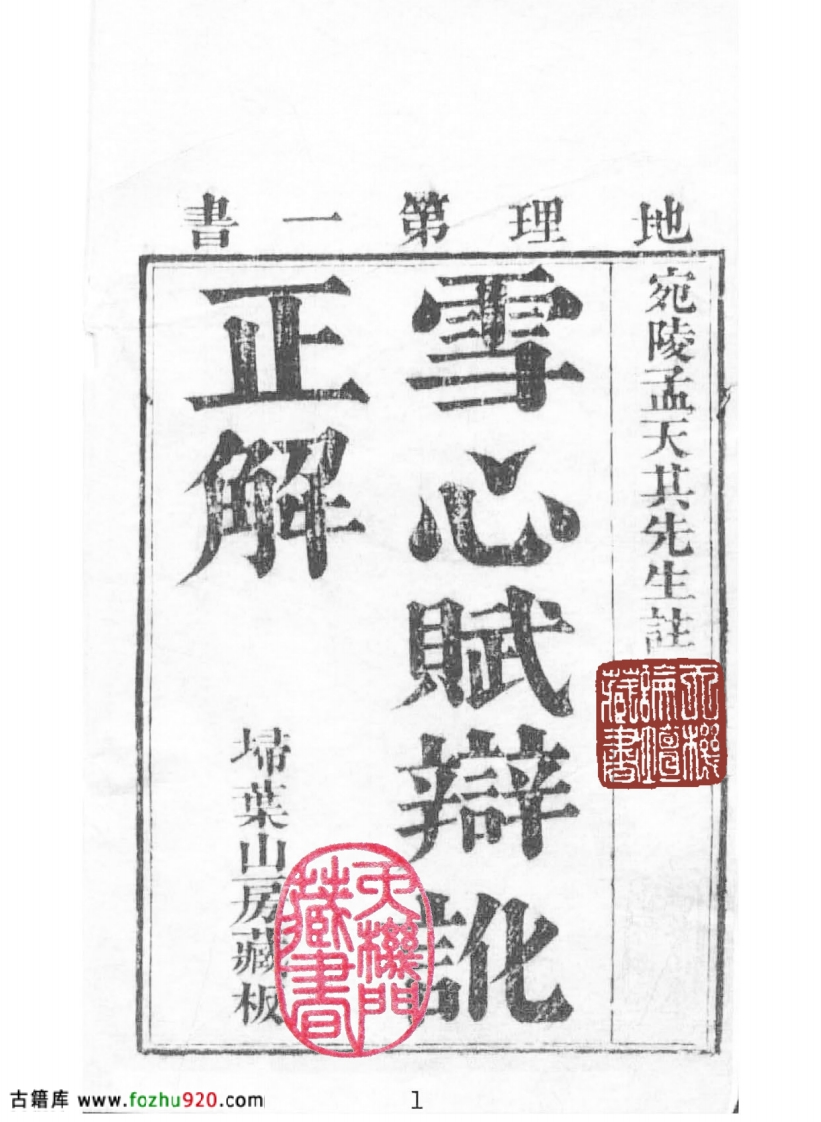 地理第一書
宛陵孟天其先生註
雪心賦辯訛
正解
埽葉山房藏板
天機論壇藏書
天機門藏書
古籍库 www.fozhu920.com
1